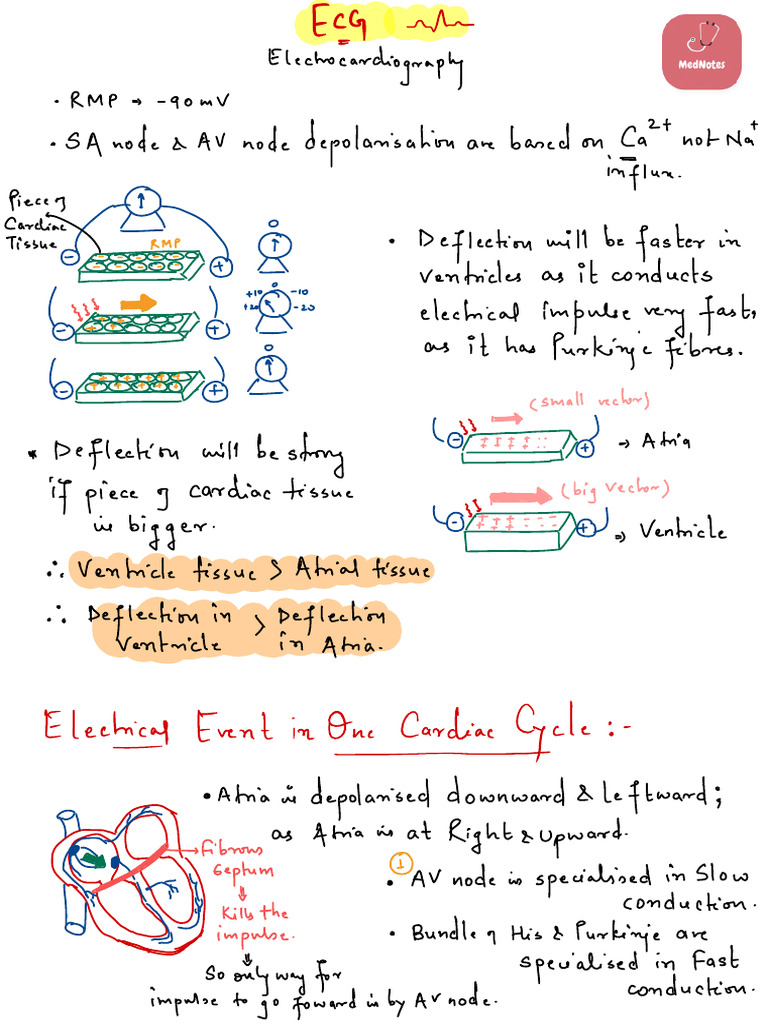 ECG
Electrocardiography
MedNotes
• RMP → -90mV
• SA node & AV node depolarisation are based on Ca2+ not Na+
influx.
Piece of
Cardiac
Tissue
RMP
0
+10 0 -10
+20 -20
0
• Deflection will be faster in
ventricles as it conducts
electrical impulse very fast,
as it has Purkinje fibres.
(small vector)
→ Atria
(big vector)
⇒ Ventricle
* Deflection will be strong
if piece of cardiac tissue
is bigger.
∴ Ventricle tissue > Atrial tissue
∴ Deflection in Ventricle > Deflection in Atria.
Electrical Event in One Cardiac Cycle :-
• Atria is depolarised downward & leftward;
as Atria is at Right & upward.
→ Fibrous
septum
↓
Kills the
impulse.
↓
So only way for
impulse to go foward is by AV node.
1
• AV node is specialised in Slow
conduction.
• Bundle of His & Purkinje are
specialised in Fast
conduction.